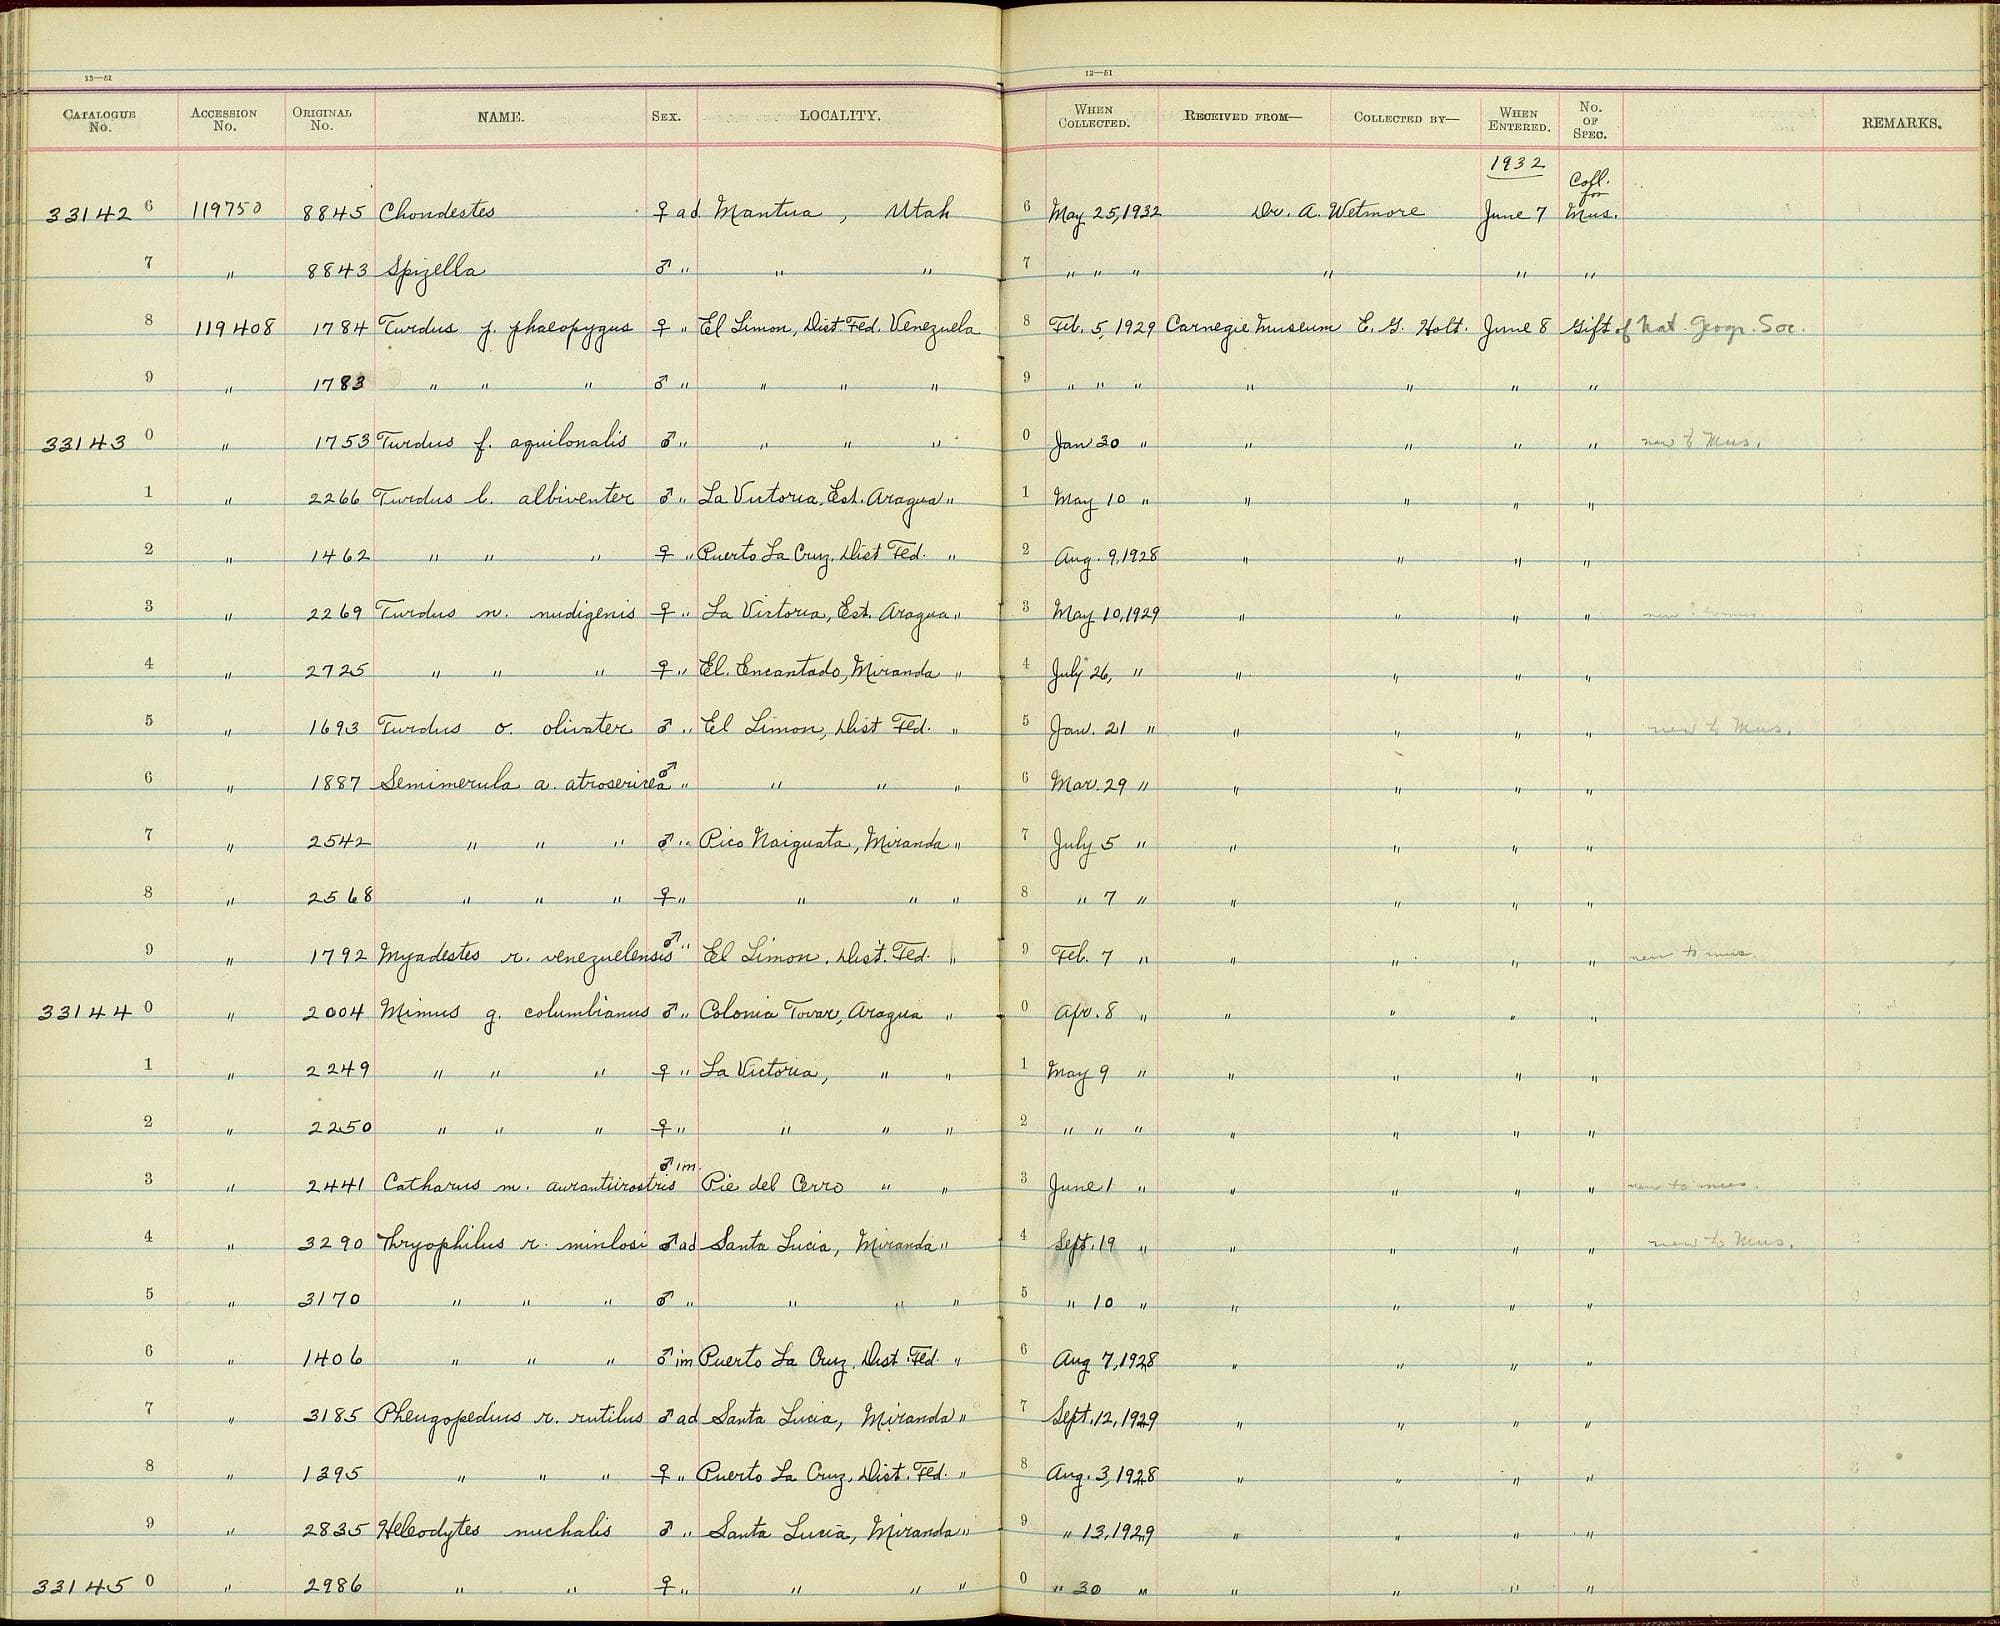 13—51 12—51
CATALOGUE No. ACCESSION No. ORIGINAL No. NAME. SEX. LOCALITY. WHEN COLLECTED. RECEIVED FROM— COLLECTED BY— WHEN ENTERED. No. OF SPEC. REMARKS.
1932
33142 6 119750 8845 Chondestes ♀ ad. Mantua, Utah 6 May 25, 1932 Dr. A. Wetmore June 7 Coll. for Mus.
7 " 8843 Spizella ♂ " " " 7 " " " " " "
8 119408 1784 Turdus p. phaeopygus ♀ " El Limon, Dist. Fed. Venezuela 8 Feb. 5, 1929 Carnegie Museum E. G. Holt. June 8 Gift of Nat. Geogr. Soc.
9 " 1783 " " " ♂ " " " " 9 " " " " " " "
33143 0 " 1753 Turdus f. aquilonalis ♂ " " " " 0 Jan 30 " " " " " new to Mus.
1 " 2266 Turdus l. albiventer ♂ " La Victoria, Est. Aragua " 1 May 10 " " " " "
2 " 1462 " " " ♀ " Puerto La Cruz, Dist Fed. " 2 Aug. 9, 1928 " " " "
3 " 2269 Turdus n. nudigenis ♀ " La Victoria, Est. Aragua " 3 May 10, 1929 " " " " new
4 " 2725 " " " ♀ " El. Encantado, Miranda " 4 July 26, " " " " "
5 " 1693 Turdus o. olivater ♂ " El Limon, Dist Fed. " 5 Jan. 21 " " " " " new to Mus.
6 " 1887 Semimerula a. atrosericea ♂ " " " " 6 Mar. 29 " " " " "
7 " 2542 " " " ♂ " Pico Naiguata, Miranda " 7 July 5 " " " " "
8 " 2568 " " " ♀ " " " " 8 " 7 " " " " "
9 " 1792 Myadestes r. venezuelensis ♂ " El Limon, Dist. Fed. " 9 Feb. 7 " " " " " new to mus.
33144 0 " 2004 Mimus g. columbianus ♂ " Colonia Tovar, Aragua " 0 Apr. 8 " " " " "
1 " 2249 " " " ♀ " La Victoria, " " 1 May 9 " " " " "
2 " 2250 " " " ♀ " " " " 2 " " " " " " "
3 " 2441 Catharus m. aurantiirostris ♂ im. Pie del Cerro " " 3 June 1 " " " " " new to mus.
4 " 3290 Thryophilus r. minlosi ♂ ad Santa Lucia, Miranda " 4 Sept. 19 " " " " " new to Mus.
5 " 3170 " " " ♂ " " " " 5 " 10 " " " " "
6 " 1406 " " " ♂ im Puerto La Cruz, Dist. Fed. " 6 Aug 7, 1928 " " " "
7 " 3185 Pheugopedius r. rutilus ♂ ad Santa Lucia, Miranda " 7 Sept. 12, 1929 " " " "
8 " 1395 " " " ♀ " Puerto La Cruz, Dist. Fed. " 8 Aug. 3, 1928 " " " "
9 " 2835 Heleodytes nuchalis ♂ " Santa Lucia, Miranda " 9 " 13, 1929 " " " "
33145 0 " 2986 " " ♀ " " " " 0 " 30 " " " " "